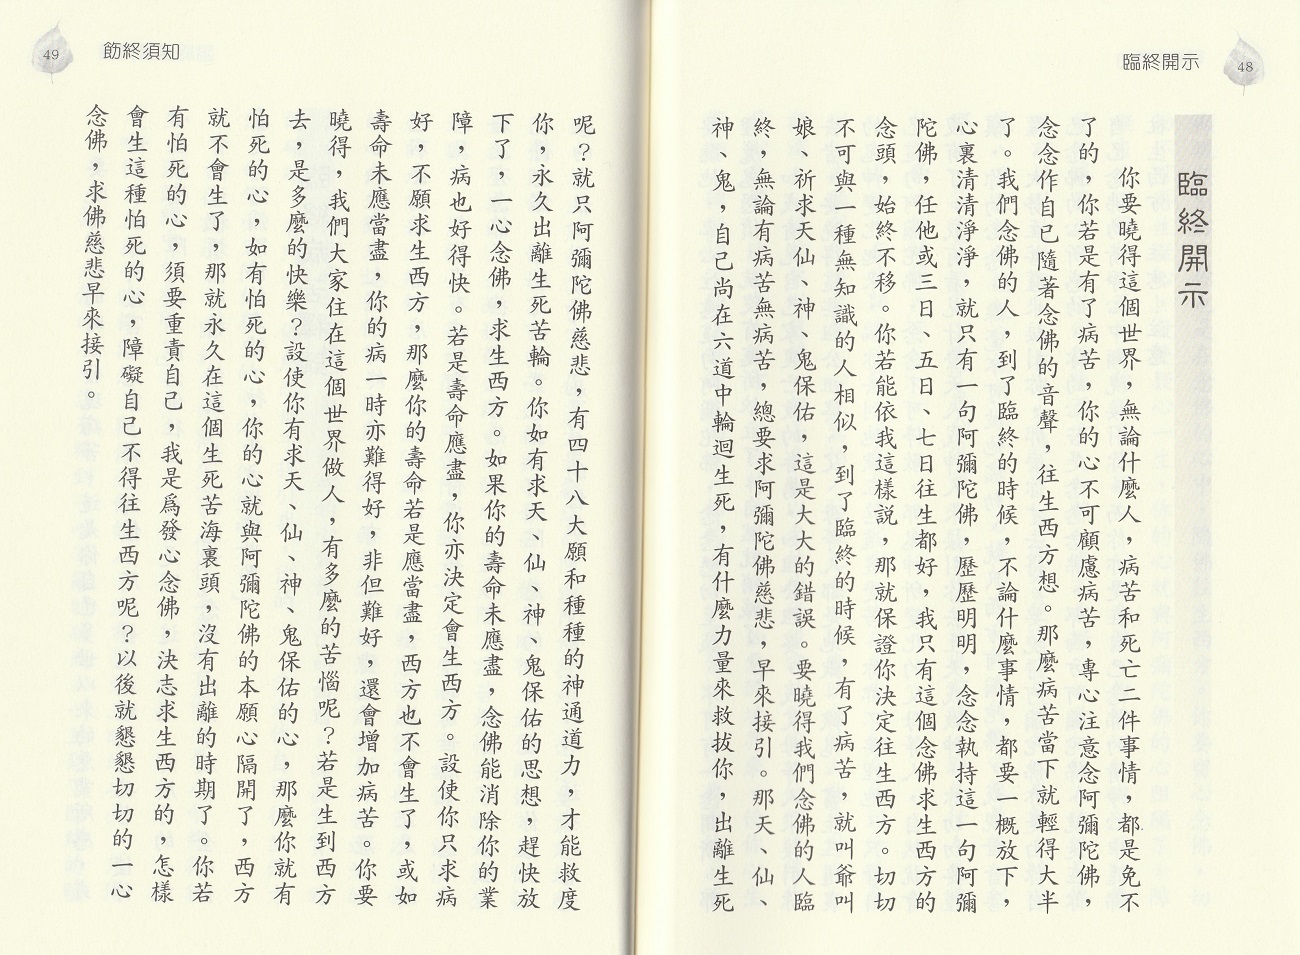 臨終開示
48
臨終開示
你要曉得這個世界，無論什麼人，病苦和死亡二件事情，都是免不
了的，你若是有了病苦，你的心不可顧慮病苦，專心注意念阿彌陀佛，
念念作自己隨著念佛的音聲，往生西方想。那麼病苦當下就輕得大半
了。我們念佛的人，到了臨終的時候，不論什麼事情，都要一概放下，
心裏清清淨淨，就只有一句阿彌陀佛，歷歷明明，念念執持這一句阿彌
陀佛，任他或三日、五日、七日往生都好，我只有這個念佛求生西方的
念頭，始終不移。你若能依我這樣說，那就保證你決定往生西方。切切
不可與一種無知識的人相似，到了臨終的時候，有了病苦，就叫爺叫
娘、祈求天仙、神、鬼保佑，這是大大的錯誤。要曉得我們念佛的人臨
終，無論有病苦無病苦，總要求阿彌陀佛慈悲，早來接引。那天、仙、
神、鬼，自己尚在六道中輪迴生死，有什麼力量來救拔你，出離生死
飭終須知
49
呢？就只阿彌陀佛慈悲，有四十八大願和種種的神通道力，才能救度
你，永久出離生死苦輪。你如有求天、仙、神、鬼保佑的思想，趕快放
下了，一心念佛，求生西方。如果你的壽命未應盡，念佛能消除你的業
障，病也好得快。若是壽命應盡，你亦決定會生西方。設使你只求病
好，不願求生西方，那麼你的壽命若是應當盡，西方也不會生了，或如
壽命未應當盡，你的病一時亦難得好，非但難好，還會增加病苦。你要
曉得，我們大家住在這個世界做人，有多麼的苦惱呢？若是生到西方
去，是多麼的快樂？設使你有求天、仙、神、鬼保佑的心，那麼你就有
怕死的心，如有怕死的心，你的心就與阿彌陀佛的本願心隔開了，西方
就不會生了，那就永久在這個生死苦海裏頭，沒有出離的時期了。你若
有怕死的心，須要重責自己，我是爲發心念佛，決志求生西方的，怎樣
會生這種怕死的心，障礙自己不得往生西方呢？以後就懇懇切切的一心
念佛，求佛慈悲早來接引。